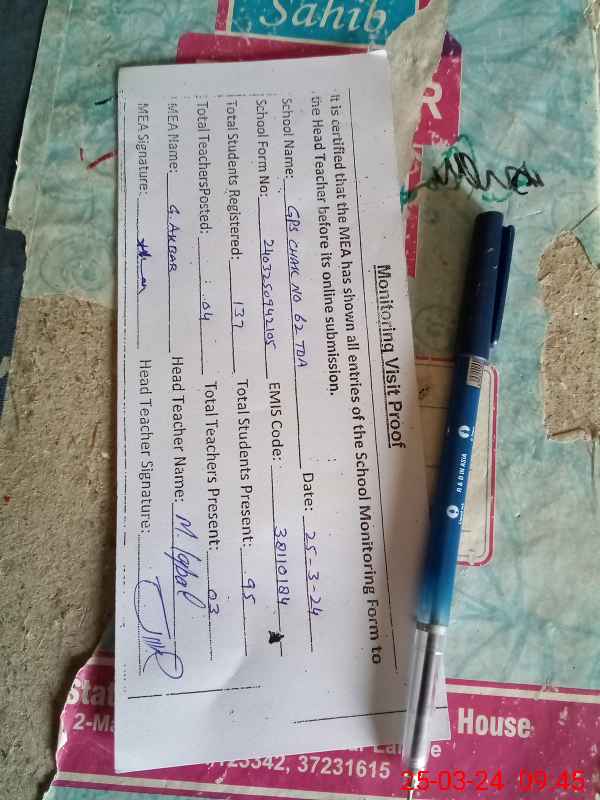 Sahib
R
Monitoring Visit Proof
It is certified that the MEA has shown all entries of the School Monitoring Form to
the Head Teacher before its online submission.
School Name: GPS CHAK NO 62 TDA Date: 25-3-24
School Form No: 2403250942105 EMIS Code: 38110184
Total Students Registered: 137 Total Students Present: 95
Total TeachersPosted: 04 Total Teachers Present: 03
MEA Name: G. AKBAR Head Teacher Name: M. Iqbal
MEA Signature: Head Teacher Signature:
House
2-Ma
7123342, 37231615
25-03-24 09:45